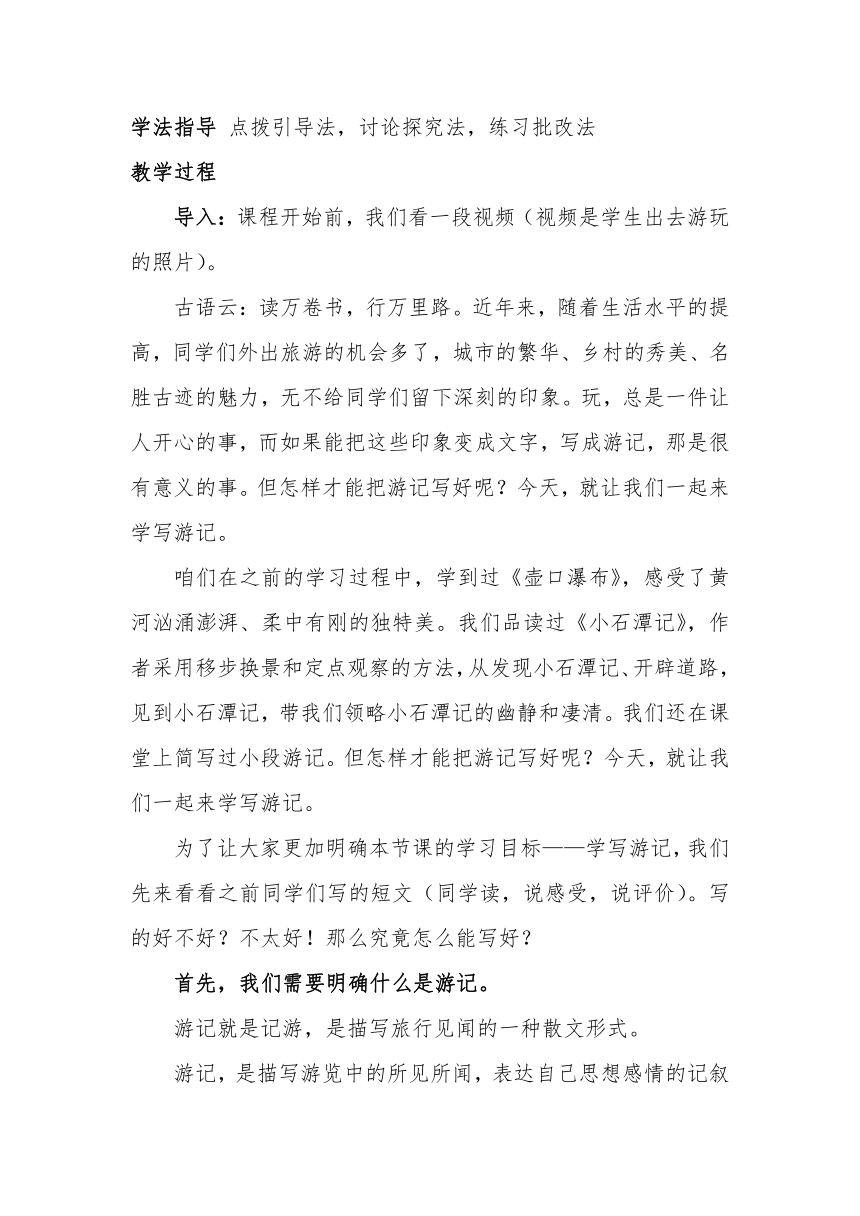 学法指导 点拨引导法，讨论探究法，练习批改法
教学过程
导入：课程开始前，我们看一段视频（视频是学生出去游玩
的照片）。
古语云：读万卷书，行万里路。近年来，随着生活水平的提
高，同学们外出旅游的机会多了，城市的繁华、乡村的秀美、名
胜古迹的魅力，无不给同学们留下深刻的印象。玩，总是一件让
人开心的事，而如果能把这些印象变成文字，写成游记，那是很
有意义的事。但怎样才能把游记写好呢？今天，就让我们一起来
学写游记。
咱们在之前的学习过程中，学到过《壶口瀑布》，感受了黄
河汹涌澎湃、柔中有刚的独特美。我们品读过《小石潭记》，作
者采用移步换景和定点观察的方法，从发现小石潭记、开辟道路，
见到小石潭记，带我们领略小石潭记的幽静和凄清。我们还在课
堂上简写过小段游记。但怎样才能把游记写好呢？今天，就让我
们一起来学写游记。
为了让大家更加明确本节课的学习目标——学写游记，我们
先来看看之前同学们写的短文（同学读，说感受，说评价）。写
的好不好？不太好！那么究竟怎么能写好？
首先，我们需要明确什么是游记。
游记就是记游，是描写旅行见闻的一种散文形式。
游记，是描写游览中的所见所闻，表达自己思想感情的记叙